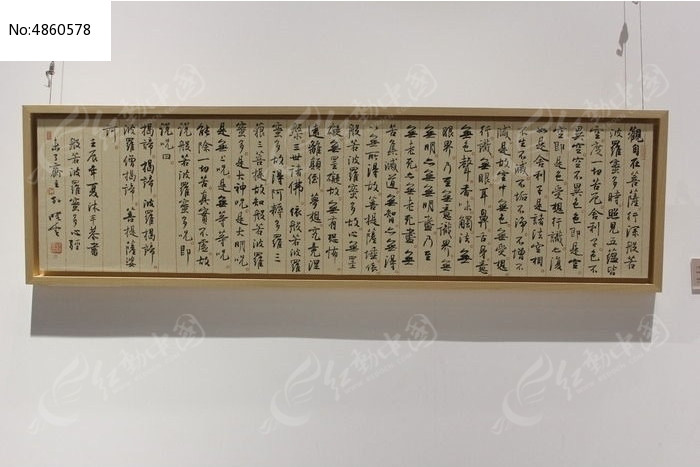 No:4860578
觀自在菩薩行深般若
波羅蜜多時照見五蘊皆
空度一切苦厄舍利子色不
異空空不異色色即是空
空即是色受想行識亦復
如是舍利子是諸法空相
不生不滅不垢不淨不增不
減是故空中無色無受想
行識無眼耳鼻舌身意
無色聲香味觸法無
眼界乃至無意識界無
無明亦無無明盡乃至
無老死亦無老死盡無
苦集滅道無智亦無得
以無所得故菩提薩埵依
般若波羅蜜多故心無罣
礙無罣礙故無有恐怖
遠離顛倒夢想究竟涅
槃三世諸佛依般若波羅
蜜多故得阿耨多羅三
藐三菩提故知般若波羅
蜜多是大神咒是大明咒
是無上咒是無等等咒
能除一切苦真實不虛故
說般若波羅蜜多咒即
說咒曰
揭諦揭諦波羅揭諦
波羅僧揭諦菩提薩婆
訶
壬辰年夏沐手恭書
般若波羅蜜多心經
红动中国